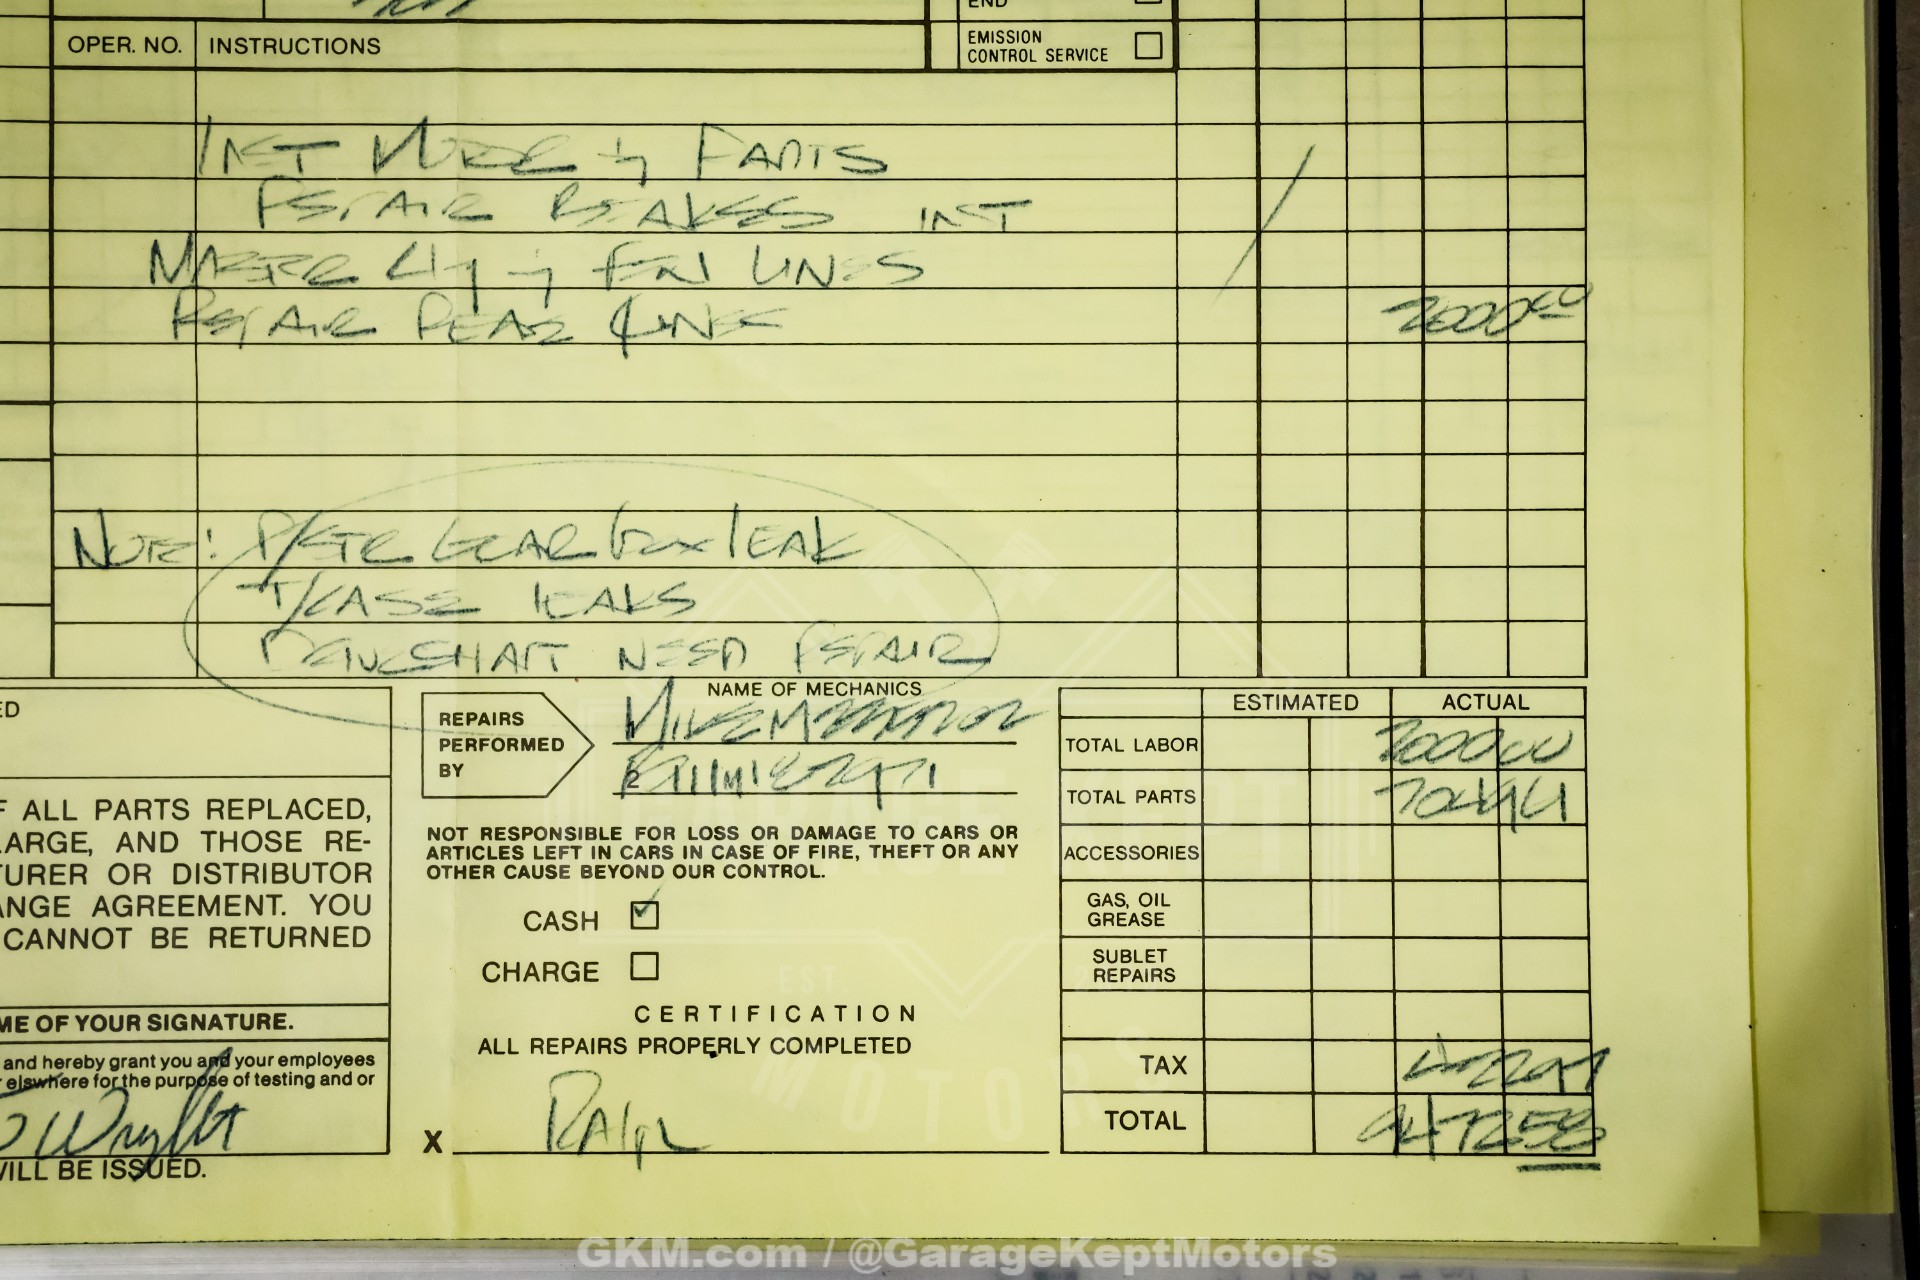 END
EMISSION
CONTROL SERVICE
OPER. NO. INSTRUCTIONS
INST & PARTS
REPAIR BRAKES INST
MASTER CLY & LINES
REPAIR REAR LINES 200000
NOTE: P/STR GEAR box LEAK
T/CASE LEAKS
DRIVESHAFT NEED REPAIR
ED
F ALL PARTS REPLACED,
ARGE, AND THOSE RE-
TURER OR DISTRIBUTOR
ANGE AGREEMENT. YOU
CANNOT BE RETURNED
ME OF YOUR SIGNATURE.
and hereby grant you and your employees
elswhere for the purpose of testing and or
Wright
WILL BE ISSUED.
REPAIRS
PERFORMED
BY
NAME OF MECHANICS
1 MIKE
2
NOT RESPONSIBLE FOR LOSS OR DAMAGE TO CARS OR
ARTICLES LEFT IN CARS IN CASE OF FIRE, THEFT OR ANY
OTHER CAUSE BEYOND OUR CONTROL.
CASH ✓
CHARGE
CERTIFICATION
ALL REPAIRS PROPERLY COMPLETED
X Ralph
ESTIMATED ACTUAL
TOTAL LABOR 200000
TOTAL PARTS
ACCESSORIES
GAS, OIL
GREASE
SUBLET
REPAIRS
TAX
TOTAL
GARAGE KEPT
EST.
MOTORS
GKM.com / @GarageKeptMotors